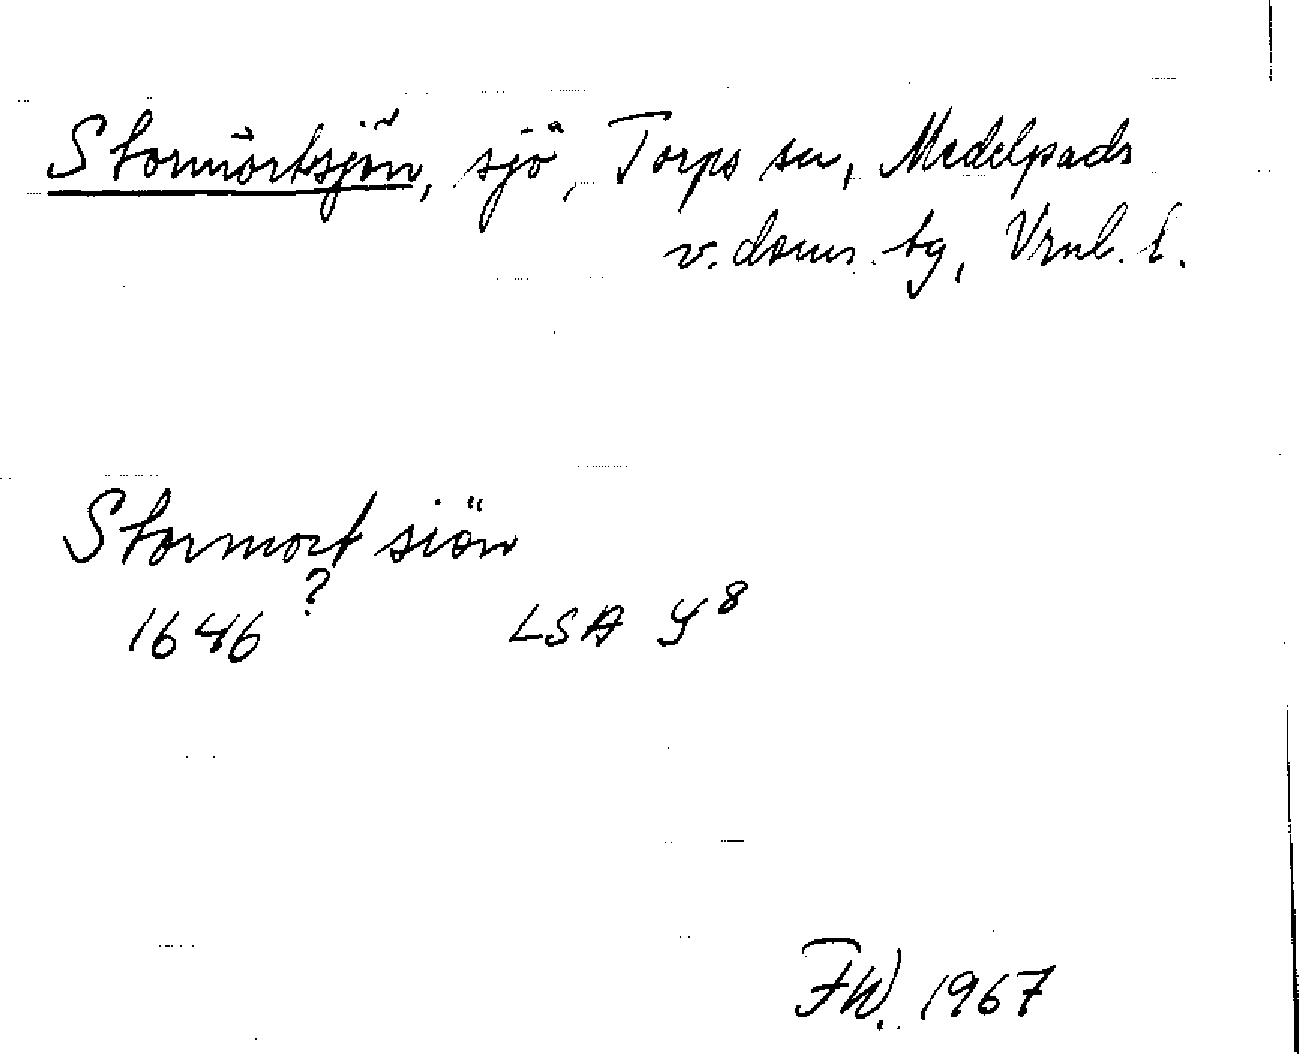 Stormörtsjön, sjö, Torps sn, Medelpads
v. doms. tg, Vrnl. l.
Stormort siön
?
1646 LSA Y8
FW. 1967